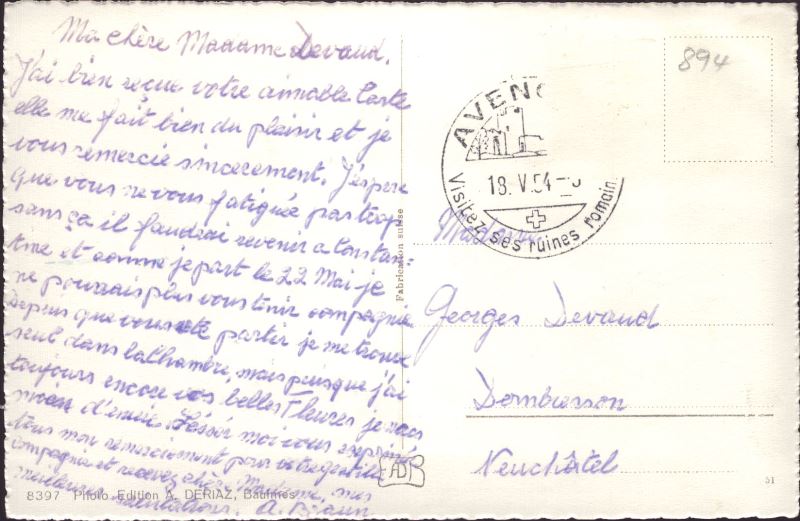 Ma chère Madame Devaud.
J'ai bien reçue votre aimable Carte
elle me fait bien du plaisir et je
vous remercie sincerement. J'éspere
que vous ne vous fatiguée pas trop
sans ça il faudrai revenir a Constan=
tine et comme je part le 22 Mai je
ne pourrais plus vous tenir compagnie
depuis que vous eté partir je me trouve
seul dans la chambre, mais puisque j'ai
toujours encore vos belles Fleures je
d'ennuie. Lésser moi vous exprimé
tous mon remerciement pour votre gentille
compagnie et recevez chère Madame, mes
meilleures salutations. A. Braun
8397 Photo Edition A. DERIAZ, Baulmes
Fabrication suisse
894
AVENC
18. V. 54
Visitez ses ruines romain
Madame
Georges Devaud
Dombresson
Neuchâtel
51